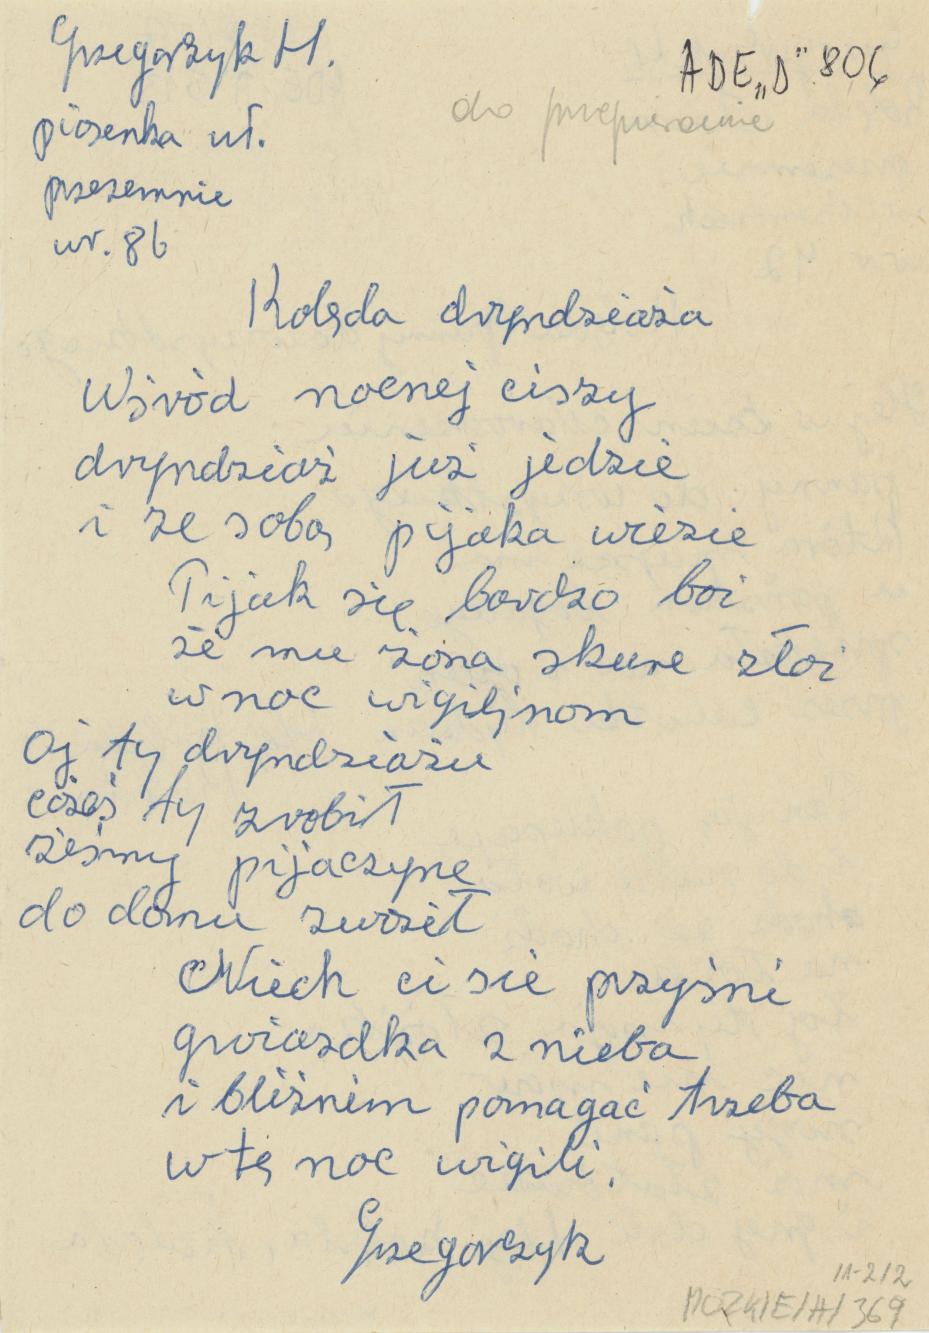 Grzegorzyk H.
ADE „D” 806
do przepisania
piosenka uł.
przezemnie
ur. 86
Kolęda dryndziaża
Wśród nocnej ciszy
dryndziaż już jedzie
i ze sobą pijaka wiezie
Pijak się bardzo boi
że mu żona skure złoi
w noc wigilijnom
Oj ty dryndziażu
cożeś ty zrobił
żeśmy pijaczyne
do domu zwoził
Niech ci sie przyśni
gwiazdka z nieba
i bliźnim pomagać trzeba
w tę noc wigili.
Grzegorczyk
11-212
MOZK/E/A/369